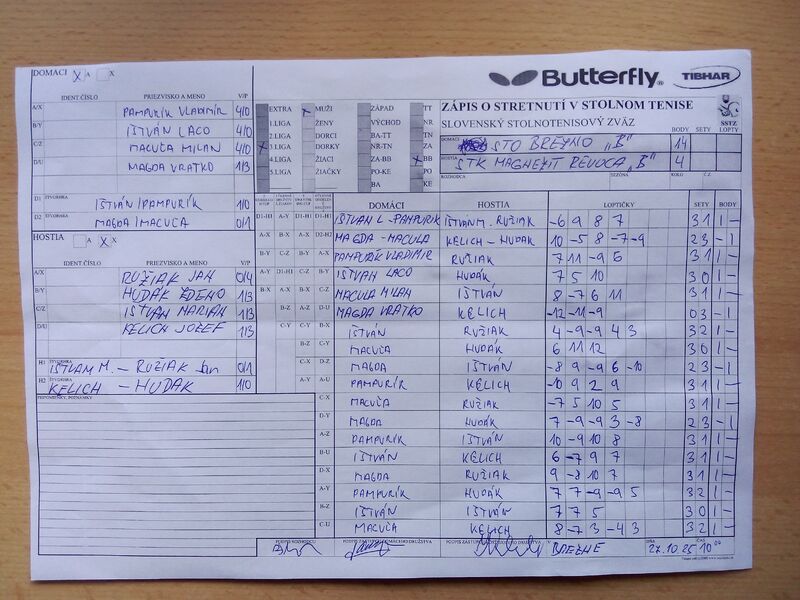 DOMÁCI X A X
IDENT ČÍSLO PRIEZVISKO A MENO V/P
A/X PAMPURÍK VLADIMÍR 4/0
B/Y IŠTVÁN LACO 4/0
C/Z MACUĽA MILAN 4/0
D/U MAGDA VRATKO 1/3
D1 ŠTVORHRA IŠTVÁN/PAMPURÍK 1/0
D2 ŠTVORHRA MAGDA/MACUĽA 0/1
HOSTIA A X X
IDENT ČÍSLO PRIEZVISKO A MENO V/P
A/X RUŽIAK JÁN 0/4
B/Y HUDÁK ZDENO 1/3
C/Z IŠTVÁN MARIÁN 1/3
D/U KELICH JOZEF 1/3
H1 ŠTVORHRA IŠTVAN M. - RUŽIAK Jan 0/1
H2 ŠTVORHRA KELICH - HUDAK 1/0
PRIPOMIENKY, POZNÁMKY:
Butterfly TIBHAR
EXTRA X MUŽI ZÁPAD TT
1.LIGA ŽENY VÝCHOD NR
2.LIGA DORCI BA-TT TN
X 3.LIGA DORKY NR-TN ZA
4.LIGA ŽIACI ZA-BB X BB
5.LIGA ŽIAČKY PO-KE PO
BA KE
ZÁPIS O STRETNUTÍ V STOLNOM TENISE
SLOVENSKÝ STOLNOTENISOVÝ ZVÄZ
SSTZ
BODY SETY LOPTY
DOMÁCI STO BREZNO "B" 14
HOSTIA STK MAGNEZIT REVÚCA "B" 4
ROZHODCA SEZÓNA KOLO Č.Z
DOMÁCI HOSTIA LOPTIČKY SETY BODY
D1-H1 A-Y D1-H1 D1-H1 IŠTVAN L - PAMPURIK IŠTVÁN M. RUŽIAK -6 9 8 7 3 1 1 -
A-X B-X A-X D2-H2 MAGDA - MACULA KELICH - HUDAK 10 -5 8 -7 -9 2 3 - 1
B-Y C-Z B-Y A-X PAMPURÍK VLADIMÍR RUŽIAK 7 11 -9 5 3 1 1 -
A-Y D1-H1 C-Z B-Y IŠTVAN LACO HUDÁK 7 5 10 3 0 1 -
B-X A-X B-X C-Z MACULA MILAN IŠTVÁN 8 -7 6 11 3 1 1 -
B-Z A-Z D-U MAGDA VRATKO KELICH -12 -11 -9 0 3 - 1
C-Y C-Y B-X IŠTVÁN RUŽIAK 4 -9 -9 4 3 3 2 1 -
B-Z C-Y MACUĽA HUDÁK 6 11 12 3 0 1 -
C-X D-Z MAGDA IŠTVÁN -8 9 -9 6 -10 2 3 - 1
A-Y A-U PAMPURÍK KELICH -10 9 2 9 3 1 1 -
C-X MACUĽA RUŽIAK -7 5 10 5 3 1 1 -
D-Y MAGDA HUDÁK 7 -9 -9 3 -8 2 3 - 1
A-Z PAMPURÍK IŠTVÁN 10 -9 10 8 3 1 1 -
B-U IŠTVÁN KELICH 6 -7 9 7 3 1 1 -
D-X MAGDA RUŽIAK 9 -8 10 7 3 1 1 -
A-Y PAMPURÍK HUDÁK 7 7 -9 -9 5 3 2 1 -
B-Z IŠTVÁN IŠTVÁN 7 7 5 3 0 1 -
C-U MACUĽA KELICH 8 -7 3 -4 3 3 2 1 -
PODPIS ROZHODCU PODPIS ZÁSTUPCU DOMÁCEHO DRUŽSTVA DŇA ČAS
27.10.25 10 00